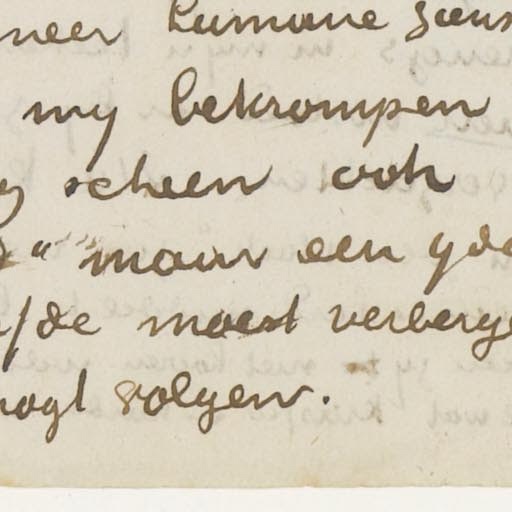 neer humane
my bekrompen
scheen ook
" maar een yde
/de moest verberge
mogt volgen.